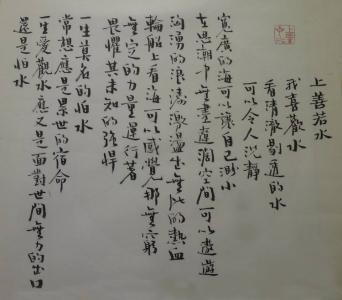 上善若水
我喜歡水
看清澈剔透的水
可以令人沉靜
寬廣的海可以讓自己渺小
在思潮中無盡遼濶空間可以遨遊
洶湧的浪濤激盪出無比的熱血
輪船上看海可以感覺人那無窮
無定的力量運行著
畏懼其未知的強悍
一生莫名的怕水
常想應是累世的宿命
一生愛觀水應又是面對世間無力的出口
還是怕水